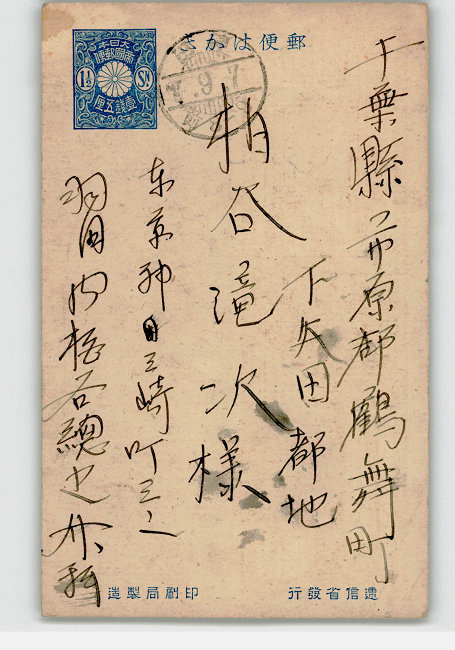 郵便はがき
大日本
帝國郵便
1½ Sn
壹錢五厘
千葉縣市原郡鶴舞町
下矢田都地
柏谷滝次様
東京神田三崎町三ノ
逓信省發行
印刷局製造